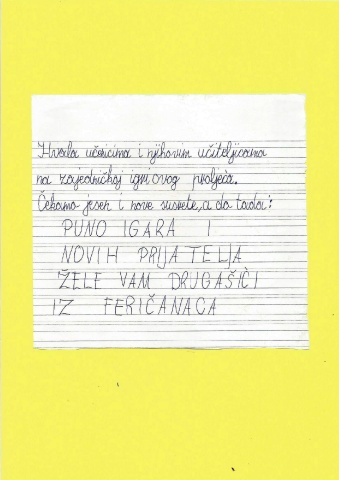 Hvala učenicima i njihovim učiteljicama
na zajedničkoj igri ovog proljeća.
Čekamo jesen i nove susrete, a do tada:
PUNO IGARA I
NOVIH PRIJATELJA
ŽELE VAM DRUGAŠIĆI
IZ FERIČANACA